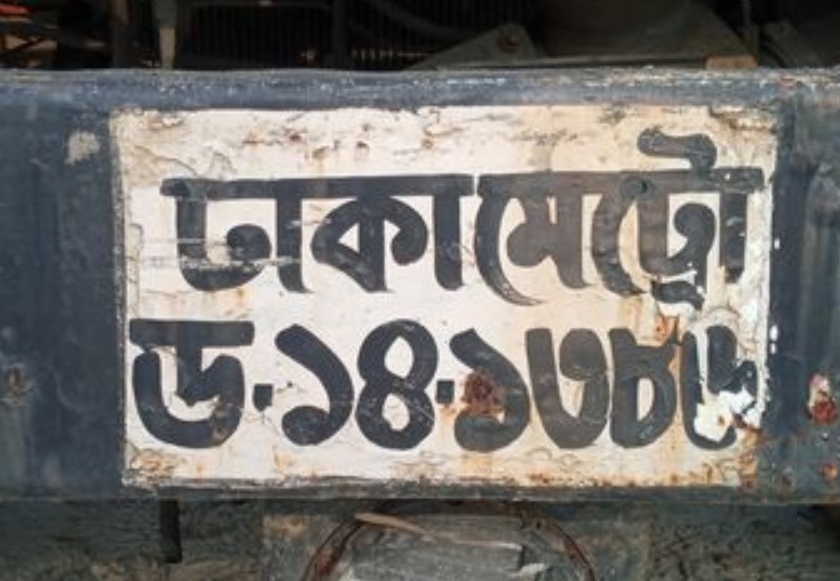 ঢাকা মেট্রো
ড·১৪·১৩৮৬